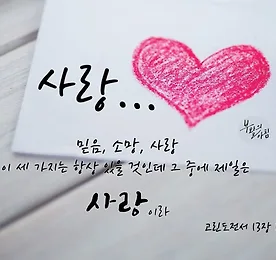 사랑...
부활의
사람
믿음, 소망, 사랑
이 세 가지는 항상 있을 것인데 그 중에 제일은
사랑이라
고린도전서 13장